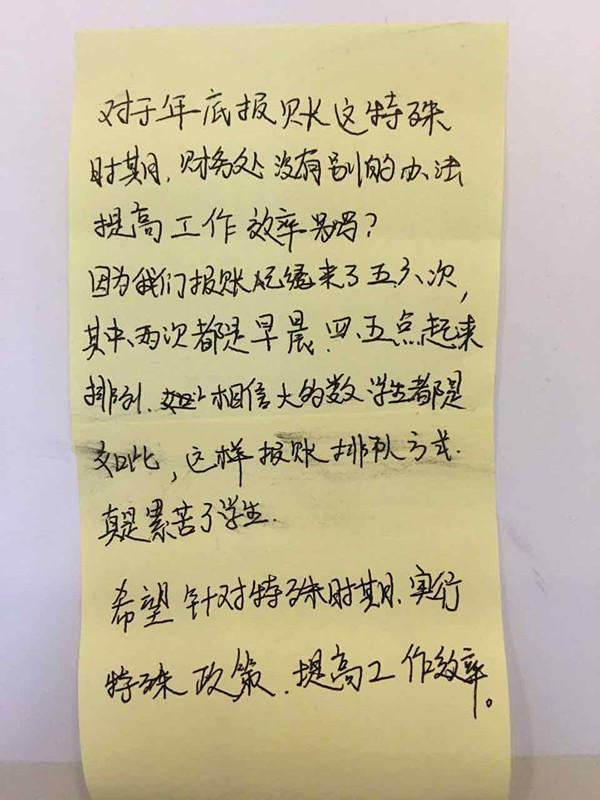 对于年底报账这特殊
时期,财务处没有别的办法
提高工作效率吗?
因为我们报账已经来了五六次,
其中、两次都是早晨四、五点起来
排列、相信大的数学生都是
如此,这样报账排队方式.
真是累苦了学生.
希望针对特殊时期、实行
特殊政策、提高工作效率。